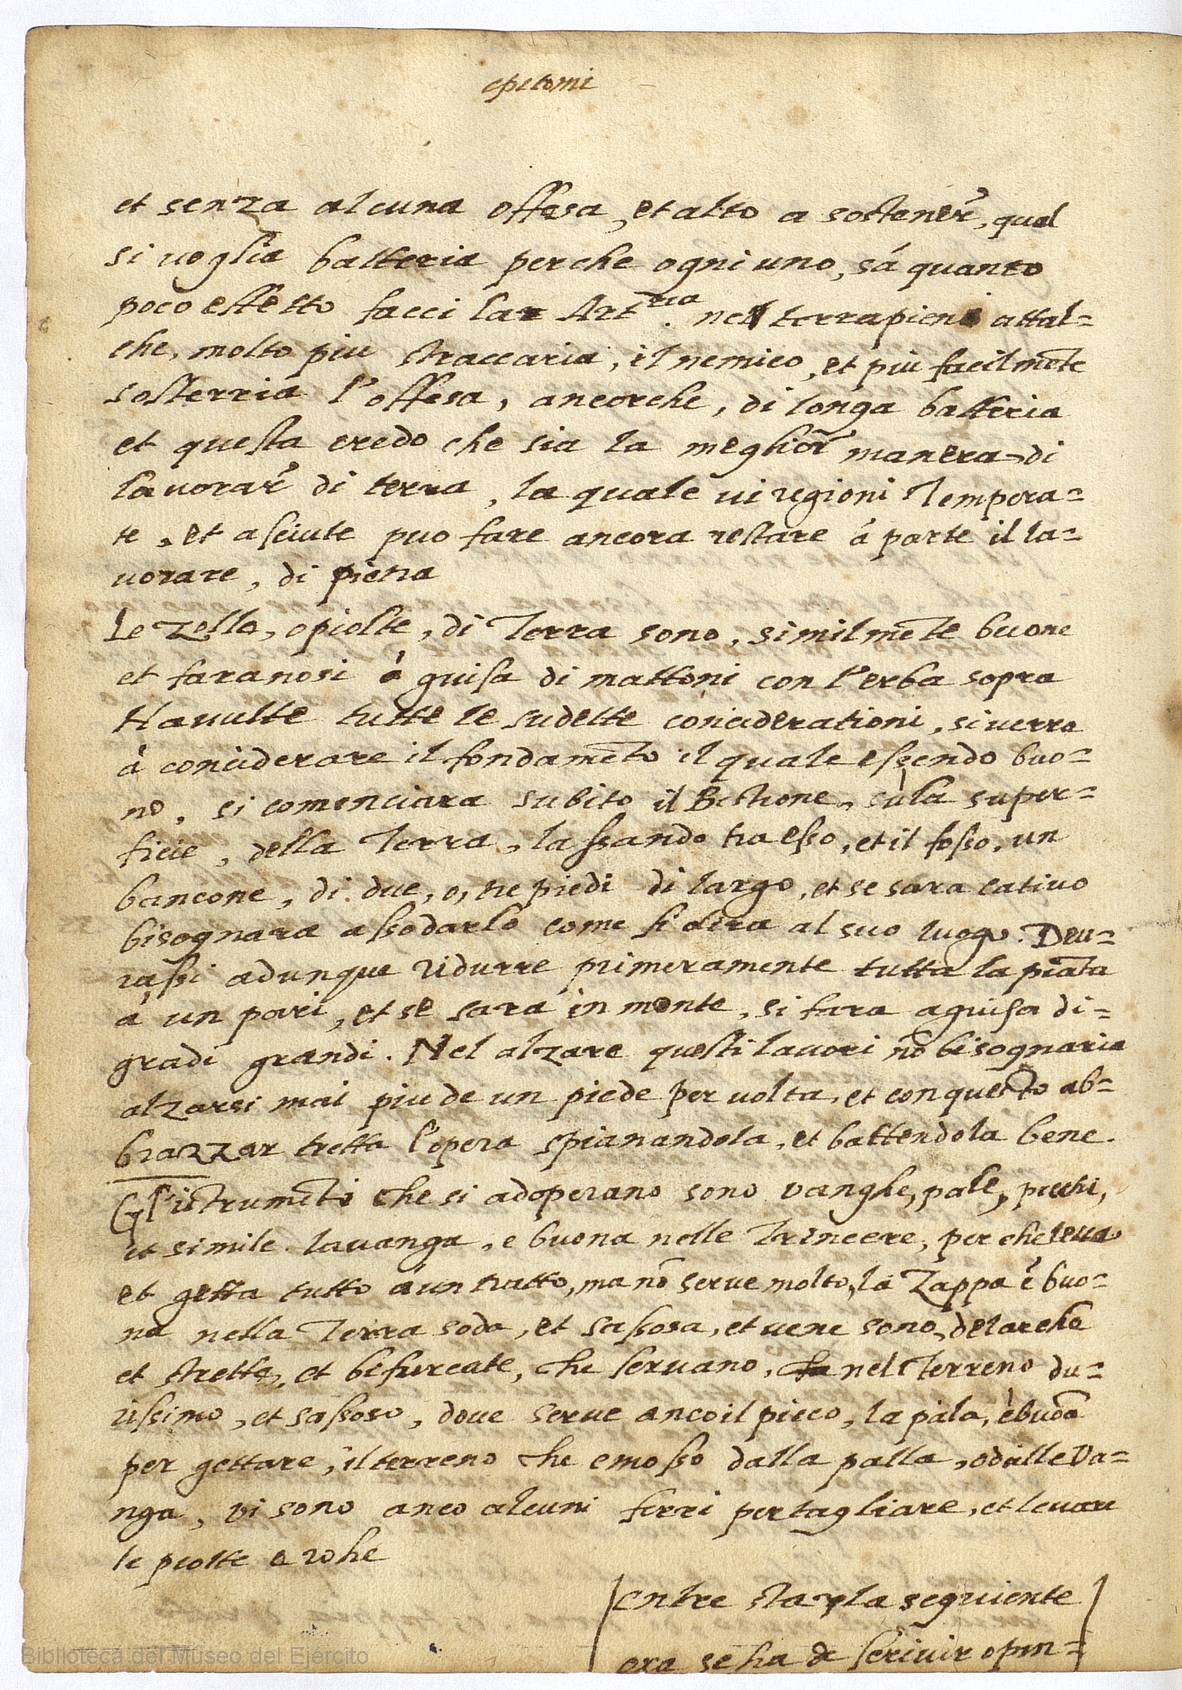 epitomi
et senza alcuna offesa, et alto a sostener̃, qual
si uoglia batteria perche ogni uno, sá quanto
poco effetto facci la Art.ria nel terrapieni attal=
che, molto piu straccaria, il nemico, et piu facilmẽte
sosterria l'offesa, ancorche, di longa batteria
et questa credo che sia la meglior̃ manera di
lauorar̃ di terra, la quale ui regioni Tempera=
te, et asciute puo fare ancora restare á parte il la=
uorare, di pietra
Le Zolle, o piolte, di Terra sono, similmẽte buone
et faranosi á guisa di mattoni con l'erba sopra
Hauutte tutte le sudette conciderationi, si uerra
á conciderare il fondamẽto il quale essendo buo=
no, si comenciara subito il Bastione, sú la super=
ficie, della Terra, lassando tra esso, et il fosso, un
bancone, di due, o, tre piedi di largo, et se sara catiuo
bisognara assodarlo come si dira al suo luogo. Deu=
rassi adunque ridurre primeramente tutta la piãta
á un pari, et se sara in monte, si fara a guisa di=
gradi grandi. Nel alzare questi lauori nõ bisognaria
alzarsi mai piu de un piede per uolta, et con questo ab=
brazzar tutta l'opera spianandola, et battendola bene.
Gl'istrumẽti che si adoperano sono vanghe, pale, picchi,
et simile. la uanga, e buona nelle Trincere, per che leua
et getta tutto á un tratto, ma nõ serue molto, la Zappa é buo=
na nella Terra soda, et sassosa, et uene sono, de larche
et strette, et befurcate, che seruano, nel Terreno du=
rissimo, et sassoso, doue serue anco il picco, la pala, è buõa
per gettare, il terreno che emosso dalla palla, o dalle Va=
nga, vi sono anco alcuni ferri per tagliare, et leuare
le piotte e rohe
entre sta y la seguiente
oxa se ha de scriuir opin=
Biblioteca del Museo del Ejército